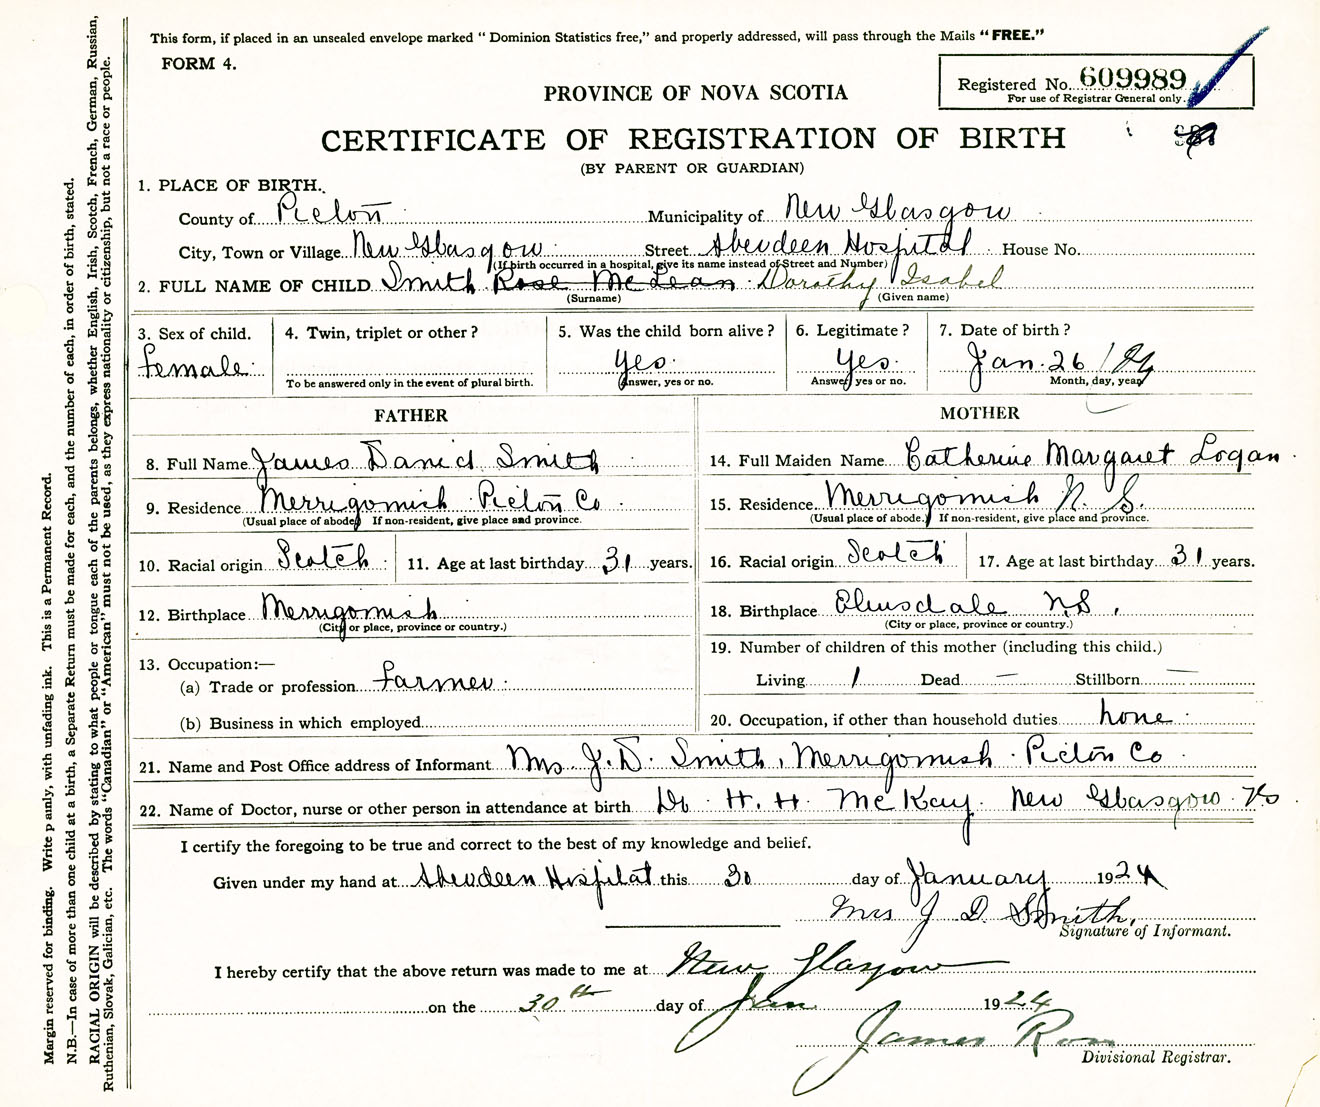 This form, if placed in an unsealed envelope marked " Dominion Statistics free," and properly addressed, will pass through the Mails "FREE."
FORM 4.
Registered No. 609989
For use of Registrar General only.
PROVINCE OF NOVA SCOTIA
CERTIFICATE OF REGISTRATION OF BIRTH
(BY PARENT OR GUARDIAN)
1. PLACE OF BIRTH.
County of Pictou Municipality of New Glasgow
City, Town or Village New Glasgow Street Aberdeen Hospital House No.
(If birth occurred in a hospital, give its name instead of Street and Number)
2. FULL NAME OF CHILD Smith Rose McLean Dorothy Isabel
(Surname) (Given name)
3. Sex of child. 4. Twin, triplet or other? 5. Was the child born alive? 6. Legitimate? 7. Date of birth?
Female Yes. Yes. Jan. 26 / 24
To be answered only in the event of plural birth. Answer, yes or no. Answer, yes or no. Month, day, year
FATHER MOTHER
8. Full Name James David Smith 14. Full Maiden Name Catherine Margaret Logan
9. Residence Merrigomish Pictou Co 15. Residence Merrigomish N. S.
(Usual place of abode) If non-resident, give place and province. (Usual place of abode.) If non-resident, give place and province.
10. Racial origin Scotch 11. Age at last birthday 31 years. 16. Racial origin Scotch 17. Age at last birthday 31 years.
12. Birthplace Merrigomish 18. Birthplace Elmsdale N.S.
(City or place, province or country.) (City or place, province or country.)
13. Occupation:— 19. Number of children of this mother (including this child.)
(a) Trade or profession Farmer Living 1 Dead — Stillborn —
(b) Business in which employed 20. Occupation, if other than household duties none
21. Name and Post Office address of Informant Mrs J. D. Smith, Merrigomish Pictou Co
22. Name of Doctor, nurse or other person in attendance at birth Dr H. H. McKay. New Glasgow. NS
I certify the foregoing to be true and correct to the best of my knowledge and belief.
Given under my hand at Aberdeen Hospital this 30 day of January 1924
Mrs J D Smith,
Signature of Informant.
I hereby certify that the above return was made to me at New Glasgow
on the 30th day of Jan 1924
James Ross
Divisional Registrar.
Margin reserved for binding. Write plainly, with unfading ink. This is a Permanent Record.
N.B.—In case of more than one child at a birth, a Separate Return must be made for each, and the number of each, in order of birth, stated.
RACIAL ORIGIN will be described by stating to what people or tongue each of the parents belongs, whether English, Irish, Scotch, French, German, Russian,
Ruthenian, Slovak, Galician, etc. The words "Canadian" or "American" must not be used, as they express nationality or citizenship, but not a race or people.